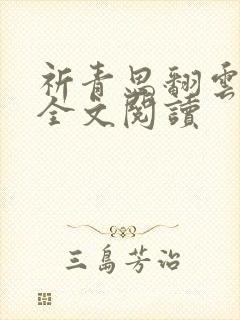 祈青思翻雲
全文閱讀
三島芳治